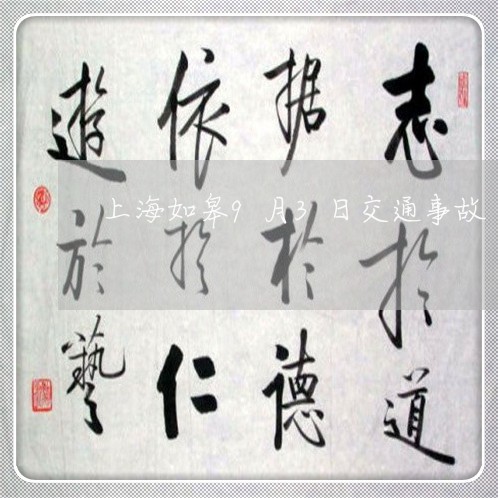 志於道
据於德
依於仁
遊於藝
上海如皋9月3日交通事故